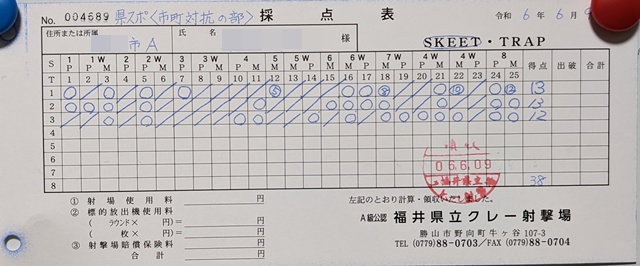 No. 004689 県スポ〈市町対抗の部〉 採点表 令和 6年 6月 9
住所または所属 市A 氏名 様 SKEET・TRAP
S 1 1W 2 2W 3 3W 4 5 5 6 6W 7W 4 4W 8 得点 出破 合計
P P M P M P P M P M
T 1 2 3 4 5 6 7 8 9 10 11 12 13 14 15 16 17 18 19 20 21 22 23 24 25
1 13
2 13
3 12
4
5
6
7
8 38
領収
06.6.09
福井県立
クレー射撃場
① 射場使用料 円
② 標的放出機使用料
(ラウンド× 円)= 円
(枚× 円)= 円
③ 射撃場賠償保険料 円
合計 円
左記のとおり計算・領収いたしました。
A級公認 福井県立クレー射撃場
勝山市野向町牛ヶ谷107-3
TEL (0779)88-0703/FAX (0779)88-0704